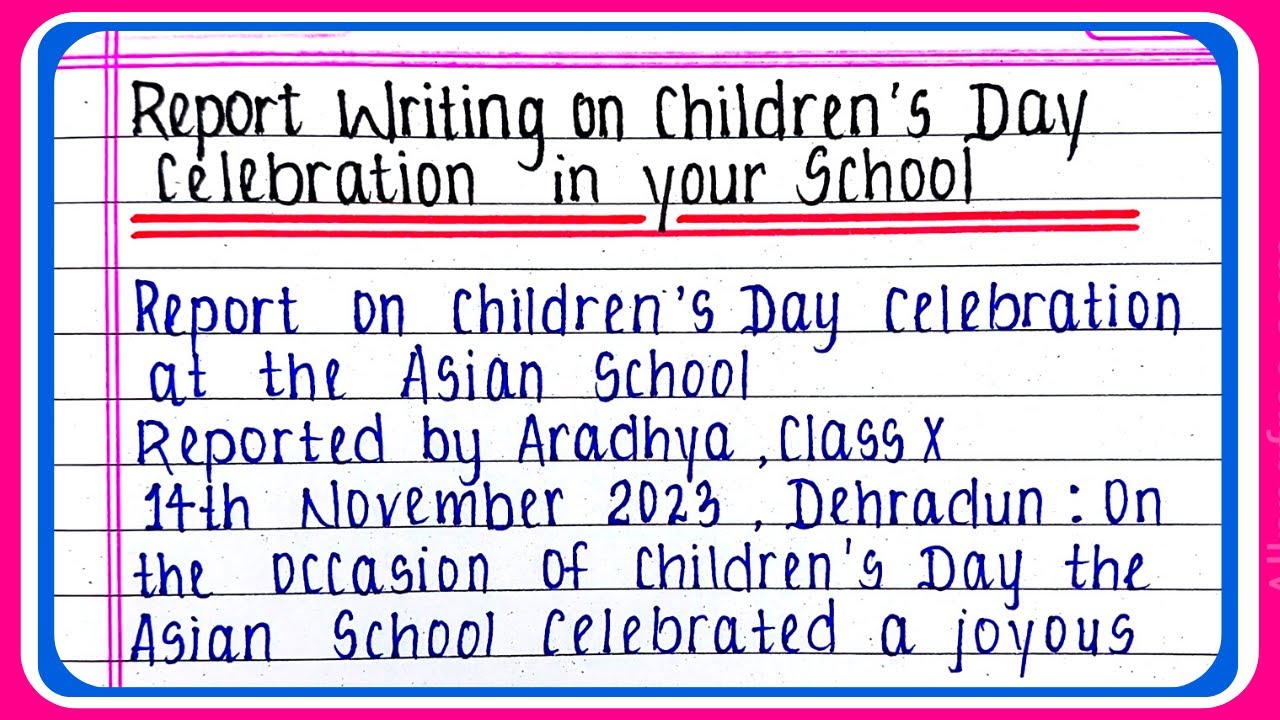 Report Writing on Children's Day
Celebration in your School
Report on Children's Day Celebration
at the Asian School
Reported by Aradhya, Class X
14th November 2023, Dehradun : On
the occasion of Children's Day the
Asian School celebrated a joyous